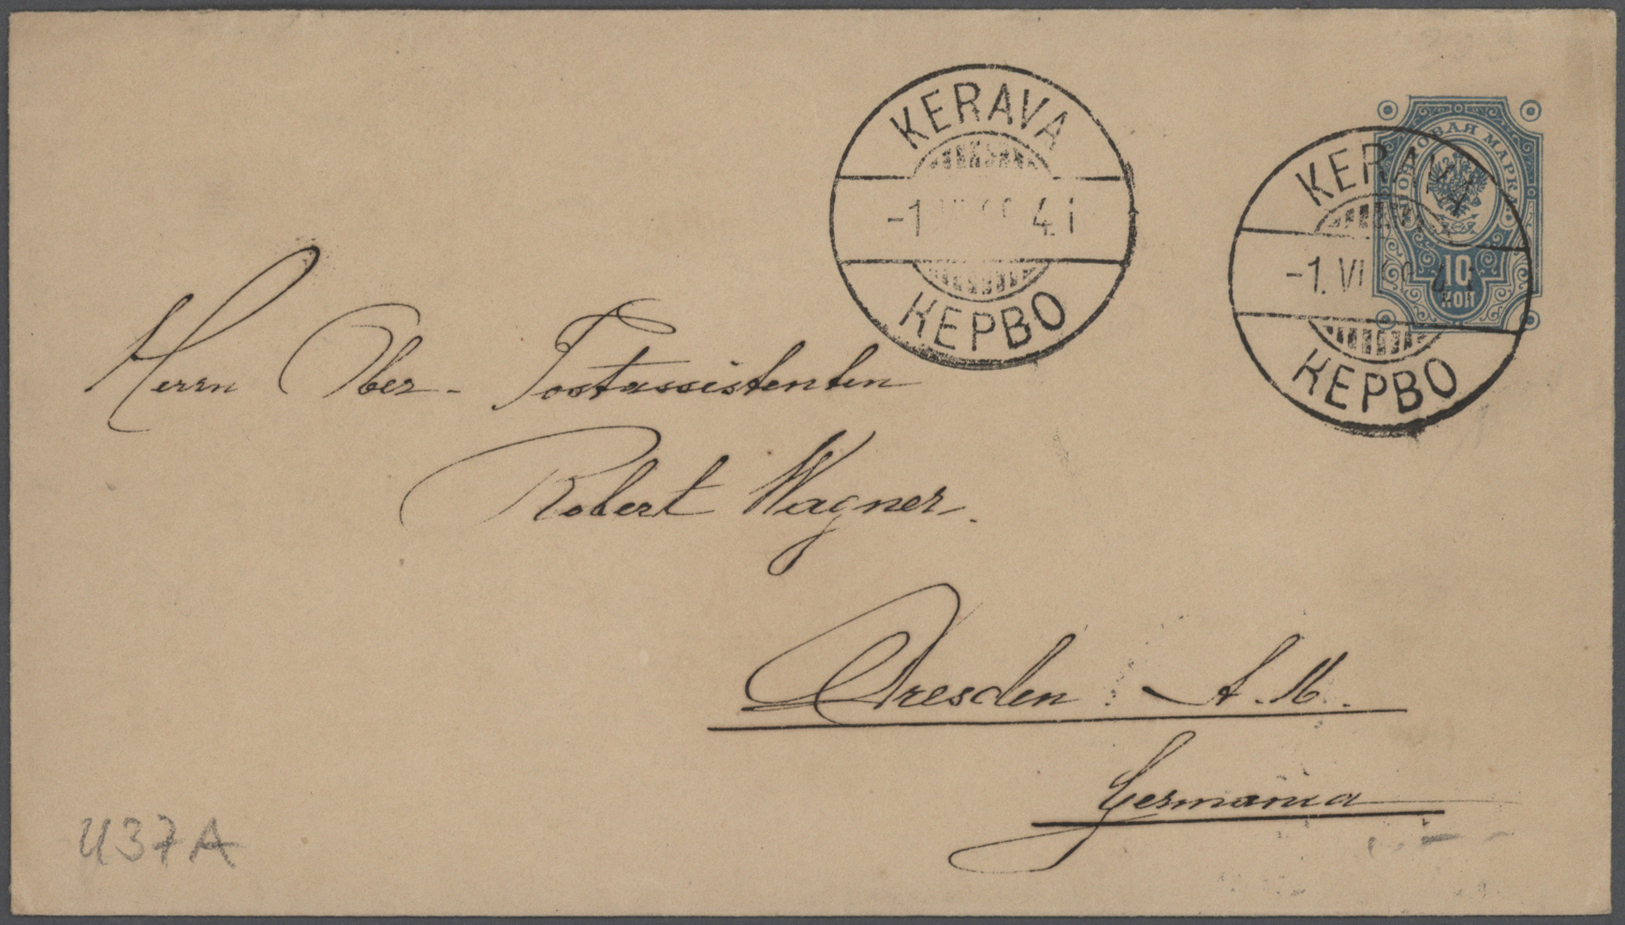 KERAVA
-1 4.I
КЕРВО
KERAVA
-1. VI
КЕРВО
ПОЧТОВАЯ МАРКА
10
КОП
Herrn Ober-Postassistenten
Robert Wagner.
Dresden A. 16.
Germania
U37A